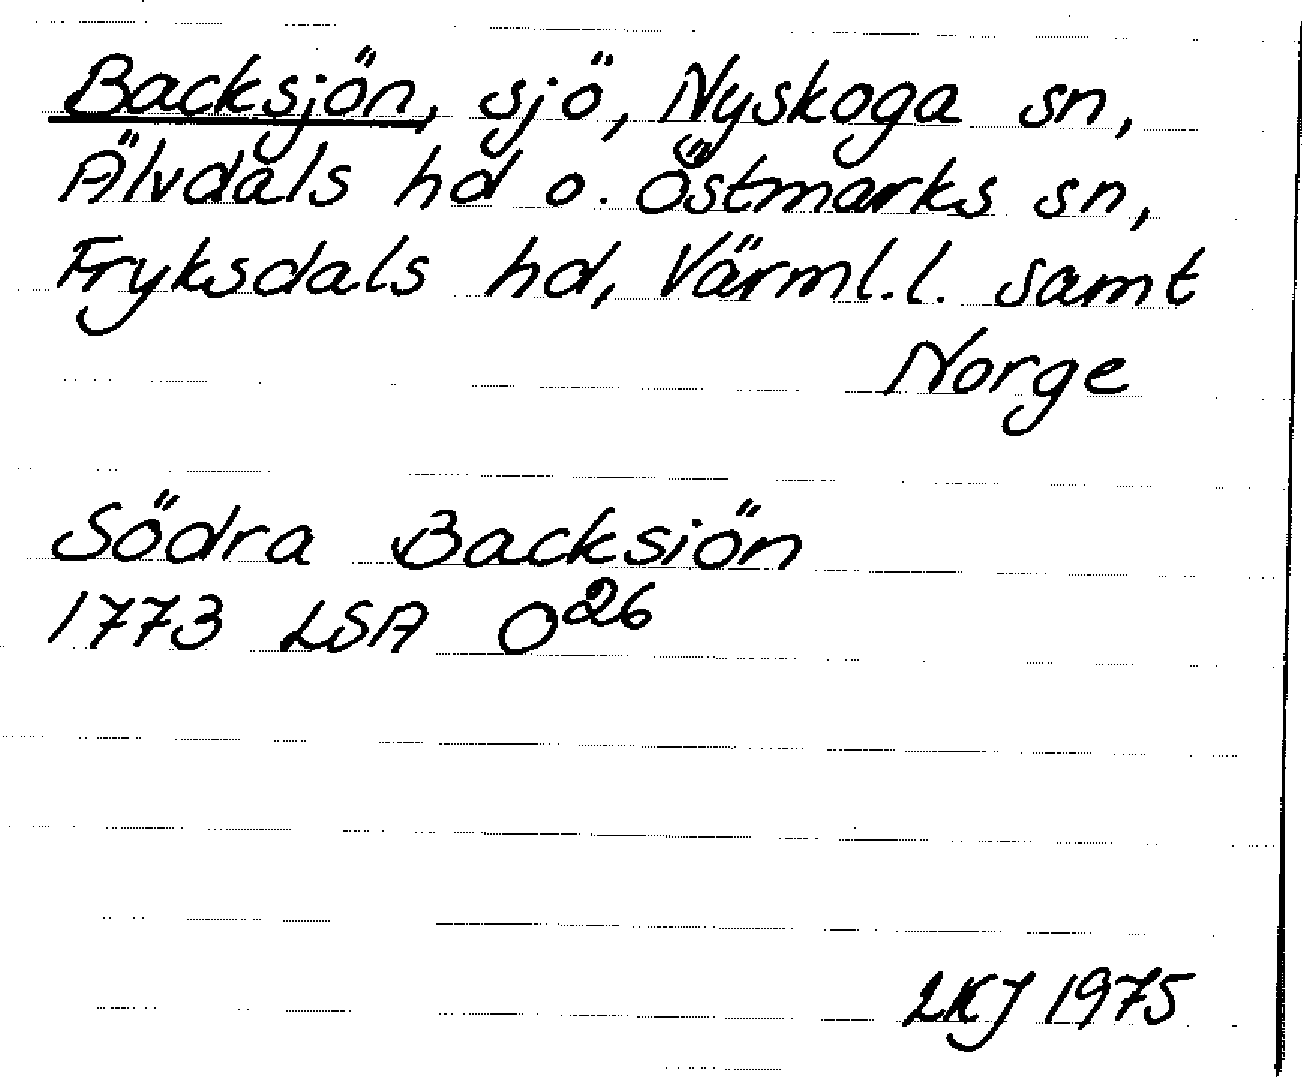 Backsjön, sjö, Nyskoga sn,
Älvdals hd o. Östmarks sn,
Fryksdals hd, Värml.l. samt
Norge
Södra Backsiön
1773 LSA O26
LKJ 1975